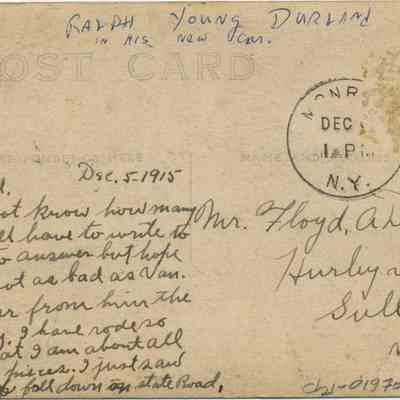 RALPH YOUNG DURLAND
IN HIS NEW CAR.
POST CARD
MONR
DEC
1 P
N.Y.
NAME AND
HERE
Dec. 5-1915
ot know how many
ll have to write to
o answer but hope
ot as bad as Van.
er from him the
I have rode so
at I am about all
pieces. I just saw
fall down on state Road,
Mr. Floyd, A D
Hurley
Sull